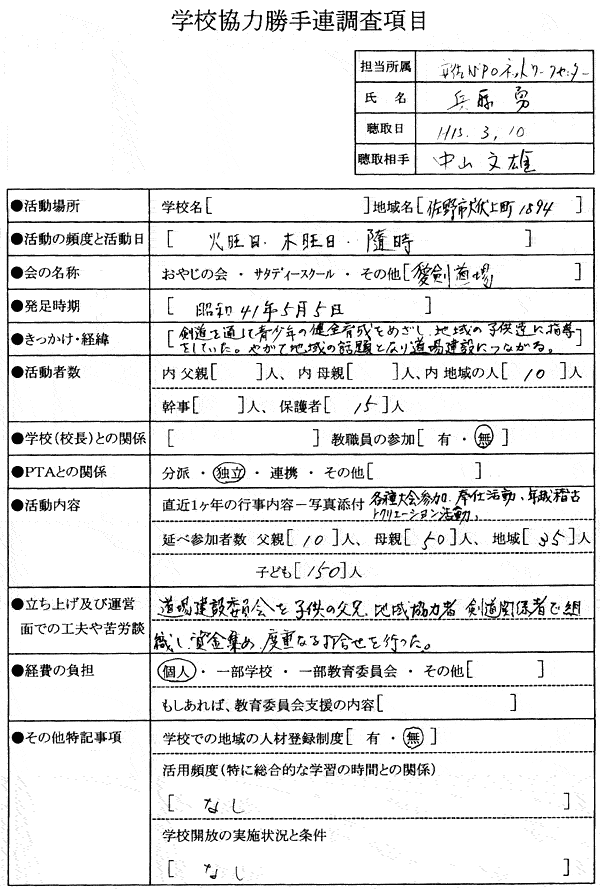 学校協力勝手連調査項目
担当所属 NPOネットワークセンター
氏 名 兵藤 勇
聴取日 H15. 3, 10
聴取相手 中山文雄
●活動場所 学校名[ ]地域名[佐野市犬伏上町1894]
●活動の頻度と活動日 [ 火曜日・木曜日・随時 ]
●会の名称 おやじの会 ・ サタデースクール ・ その他[愛剣道場 ]
●発足時期 [ 昭和41年5月5日 ]
●きっかけ・経緯 [剣道を通して青少年の健全育成をめざし、地域の子供達に指導
をしていた。やがて地域の話題となり道場建設につながる。]
●活動者数 内 父親[ ]人、 内 母親[ ]人、内 地域の人[ 10 ]人
幹事[ ]人、 保護者[ 15 ]人
●学校(校長)との関係 [ ] 教職員の参加[ 有 ・ 無 ]
●PTAとの関係 分派 ・ 独立 ・ 連携 ・ その他[ ]
●活動内容 直近1ヶ年の行事内容－写真添付 各種大会参加、奉仕活動、年越稽古
レクリエーション活動、
延べ参加者数 父親[ 10 ]人、 母親[ 50 ]人、 地域[ 35 ]人
子ども[ 150 ]人
●立ち上げ及び運営 道場建設委員会を子供の父兄、地域協力者、剣道関係者で組
面での工夫や苦労談 織し、資金集め、度重なる打合せを行った。
●経費の負担 個人 ・ 一部学校 ・ 一部教育委員会 ・ その他[ ]
もしあれば、教育委員会支援の内容[ ]
●その他特記事項 学校での地域の人材登録制度[ 有 ・ 無 ]
活用頻度(特に総合的な学習の時間との関係)
[ なし ]
学校開放の実施状況と条件
[ なし ]